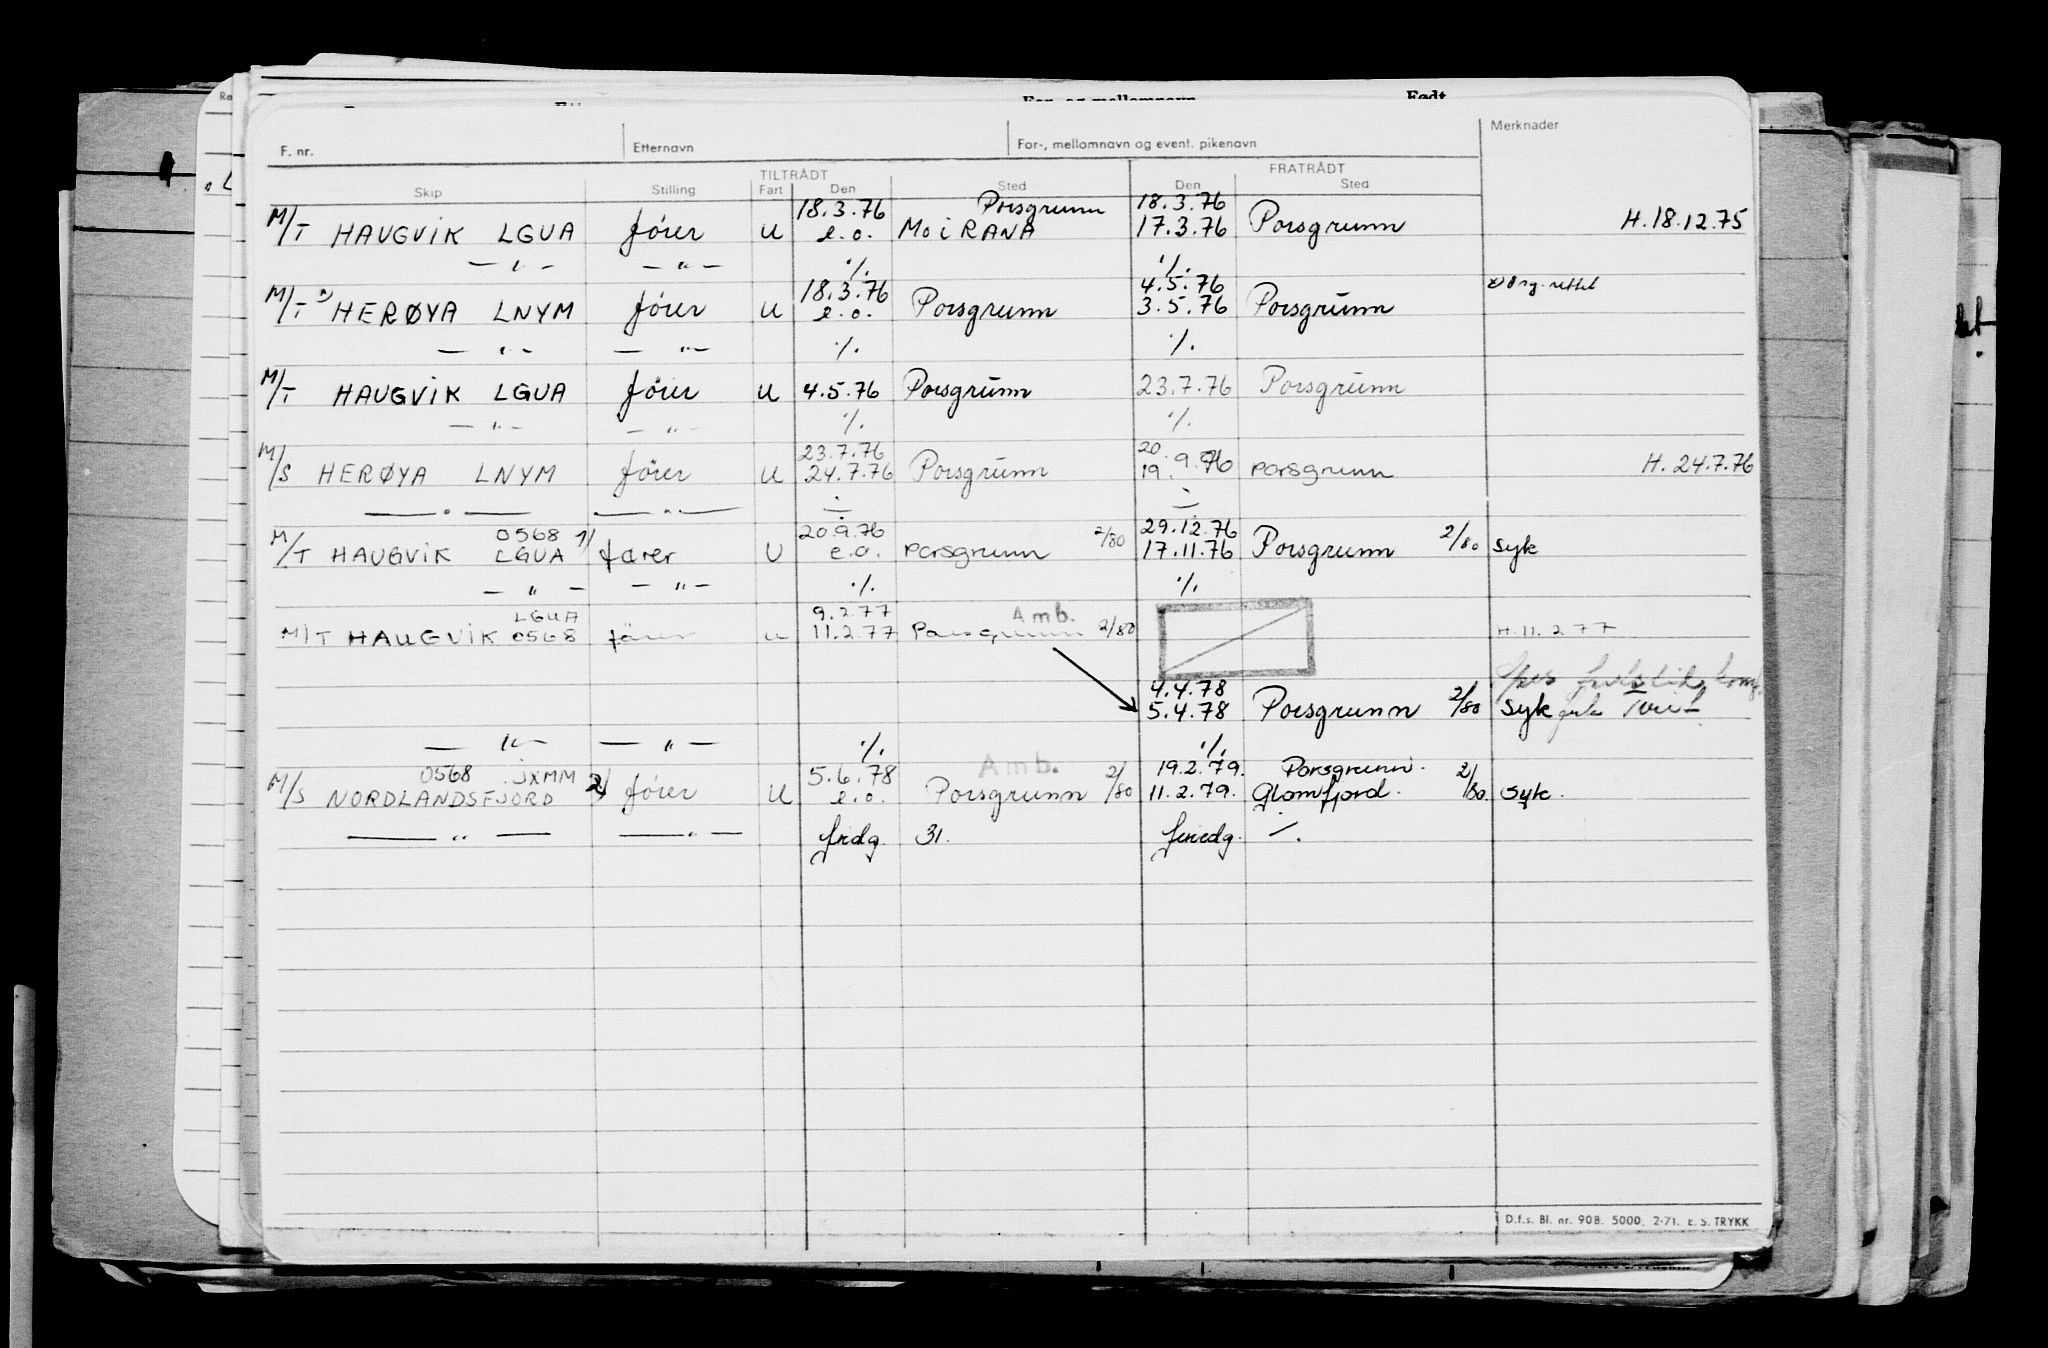 For- og mellomnavn Født
Merknader
F. nr. Etternavn For-, mellomnavn og event. pikenavn
TILTRÅDT FRATRÅDT
Skip Stilling Fart Den Sted Den Sted
18.3.76 Porsgrunn 18.3.76
M/T HAUGVIK LGUA fører U e.o. Mo i RANA 17.3.76 Porsgrunn H.18.12.75
— " — — " — ·/. ·/.
18.3.76 4.5.76
M/T HERØYA LNYM fører U e.o. Porsgrunn 3.5.76 Porsgrunn
— " — — " — ·/. ·/.
M/T HAUGVIK LGUA fører U 4.5.76 Porsgrunn 23.7.76 Porsgrunn
— " — — " — ·/. ·/.
23.7.76 20
M/S HERØYA LNYM fører U 24.7.76 Porsgrunn 19. 9.76 Porsgrunn H. 24.7.76
— " — — " —
0568 1/ 20.9.76 29.12.76
M/T HAUGVIK LGUA fører U e.o. Porsgrunn 2/80 17.11.76 Porsgrunn 2/80 syk
— " — — " — ·/. ·/.
LGUA 9.2.77 Amb.
M/T HAUGVIK 0568 fører u 11.2.77 Porsgrunn 2/80 H.11.2.77
4.4.78
5.4.78 Porsgrunn 2/80 syk
— " — — " — ·/. ·/.
0568 JXMM 5.6.78 Amb. 19.2.79. Porsgrunn.
M/S NORDLANDSFJORD 2) fører U e.o. Porsgrunn 2/80 11.2.79. Glomfjord. 2/80. syk.
— " — — " — fridg. 31. feriedg. ·/.
D.f.s. Bl. nr. 90B. 5000. 2-71. E. S. TRYKK